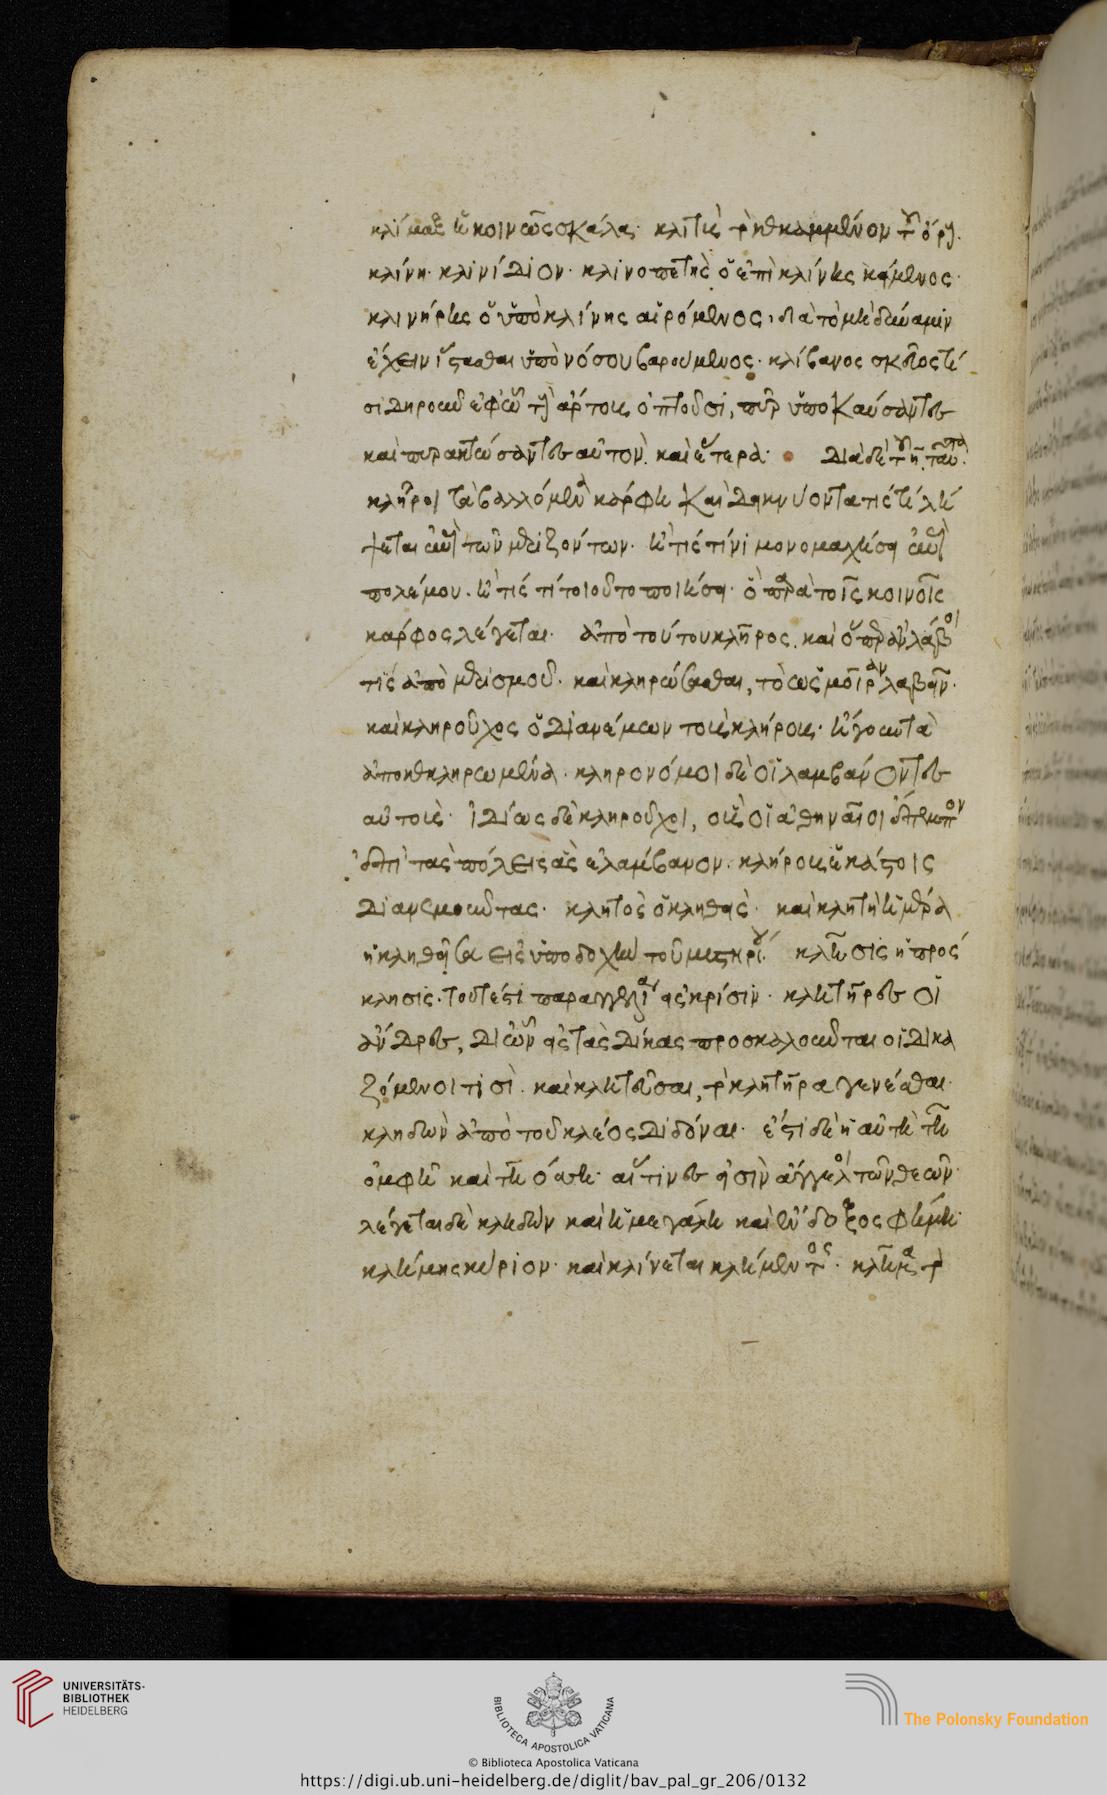 κλίμαξ ἡ κοινῶς σκάλα· κλιτὺς τὸ κεκλιμμένον τοῦ ὄρους.
κλίνη· κλινίδιον· κλινοπετὴς ὁ ἐπὶ κλίνης κείμενος·
κλινήρης ὁ ὑπὸ κλίνης αἰρόμενος, διὰ τὸ μὴ δύναμιν
ἔχειν ἵστασθαι ὑπὸ νόσου βαρούμενος· κλίβανος σκεῦος τί
σιδηροῦν ἐφ' ᾧ τοὺς ἄρτους ὀπτοῦσι, πῦρ ὑποκαύσαντες
καὶ πυρακτώσαντες αὐτόν. καὶ ἕτερα· Διὰ δὲ τοῦ η ταῦτα·
κλῆροι τὰ βαλλόμενα κάρφη καὶ δεικνύοντα τίς τί λή
ψεται ἀπὸ τῶν μεριζόντων· ἢ τίς τίνι μονομαχήσει ἀπὸ
πολέμου. ἢ τίς τί τοιοῦτο ποιήσει· ὃ παρὰ τοῖς κοινοῖς
κάρφος λέγεται· ἀπὸ τούτου κλῆρος. καὶ ὅπερ ἂν λάβοι
τίς ἀπὸ μερισμοῦ· καὶ κληρώσασθαι, τὸ ὡς μοῖραν λαβεῖν·
καὶ κληροῦχος ὁ διανέμων τοὺς κλήρους· ἤγουν τὰ
ἀποκεκληρωμένα· κληρονόμοι δὲ οἱ λαμβάνοντες
αὐτοὺς· ἰδίως δὲ κληροῦχοι, οὓς οἱ ἀθηναῖοι ἔπεμπον
ἐπὶ τὰς πόλεις ἃς ἐλάμβανον. κλήρους ἑκάστοις
διανεμοῦντας· κλητὸς ὁ κληθείς· καὶ κλητὴ ἡμέρα
ἡ κληθεῖσα εἰς ὑποδοχὴν τοῦ μυστηρίου· κλῆσις ἡ πρός
κλησις. τουτέστι παραγγελία εἰς κρίσιν· κλητῆρες οἱ
ἄνδρες, δι' ὧν εἰς τὰς δίκας προσκαλοῦνται οἱ δικα
ζόμενοι τισὶ· καὶ κλητεῦσαι, τὸ κλητῆρα γενέσθαι·
κληδὼν ἀπὸ τοῦ κλέος διδόναι· ἔστι δὲ ἡ αὐτὴ τῇ
ὀμφῇ καὶ τῇ ὄσσῃ· αἵτινες εἰσὶν ἄγγελοι τῶν θεῶν·
λέγεται δὲ κληδὼν καὶ ἡ μεγάλη καὶ ἔνδοξος φήμη·
κλήμης κύριον· καὶ κλίνεται κλήμεντος· κλῆμα τὸ
UNIVERSITÄTS-
BIBLIOTHEK
HEIDELBERG
BIBLIOTECA APOSTOLICA VATICANA
The Polonsky Foundation
© Biblioteca Apostolica Vaticana
https://digi.ub.uni-heidelberg.de/diglit/bav_pal_gr_206/0132